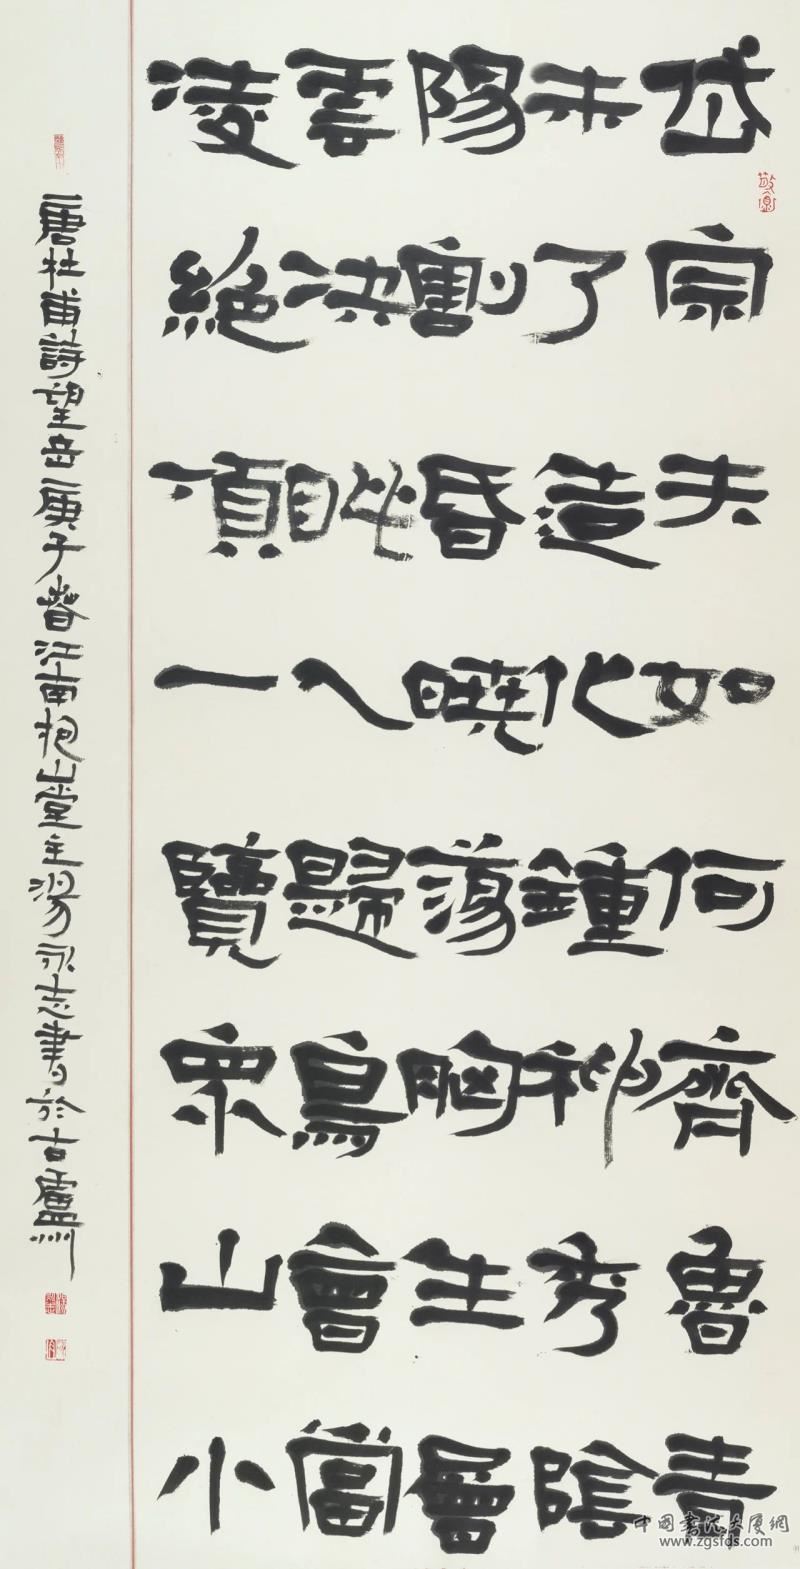 岱宗夫如何齊魯青
未了造化鍾神秀陰
陽割昏曉蕩胸生層
雲決眦入歸鳥會當
凌絶頂一覽眾山小
唐杜甫詩望岳庚子春江南抱山堂主湯永志書於古廬州
中國書法大厦網
www.zgsfds.com